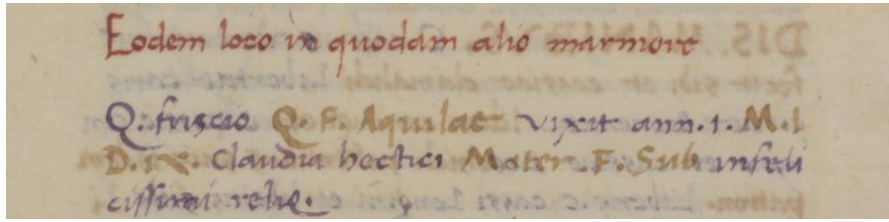 Eodem loco in quodam alio marmore
Q. friscio Q. F. Aquilae vixit ann. 1. M. I
D. IX. Claudia hectici Mater F. Sub infeli
cissimi reliq.